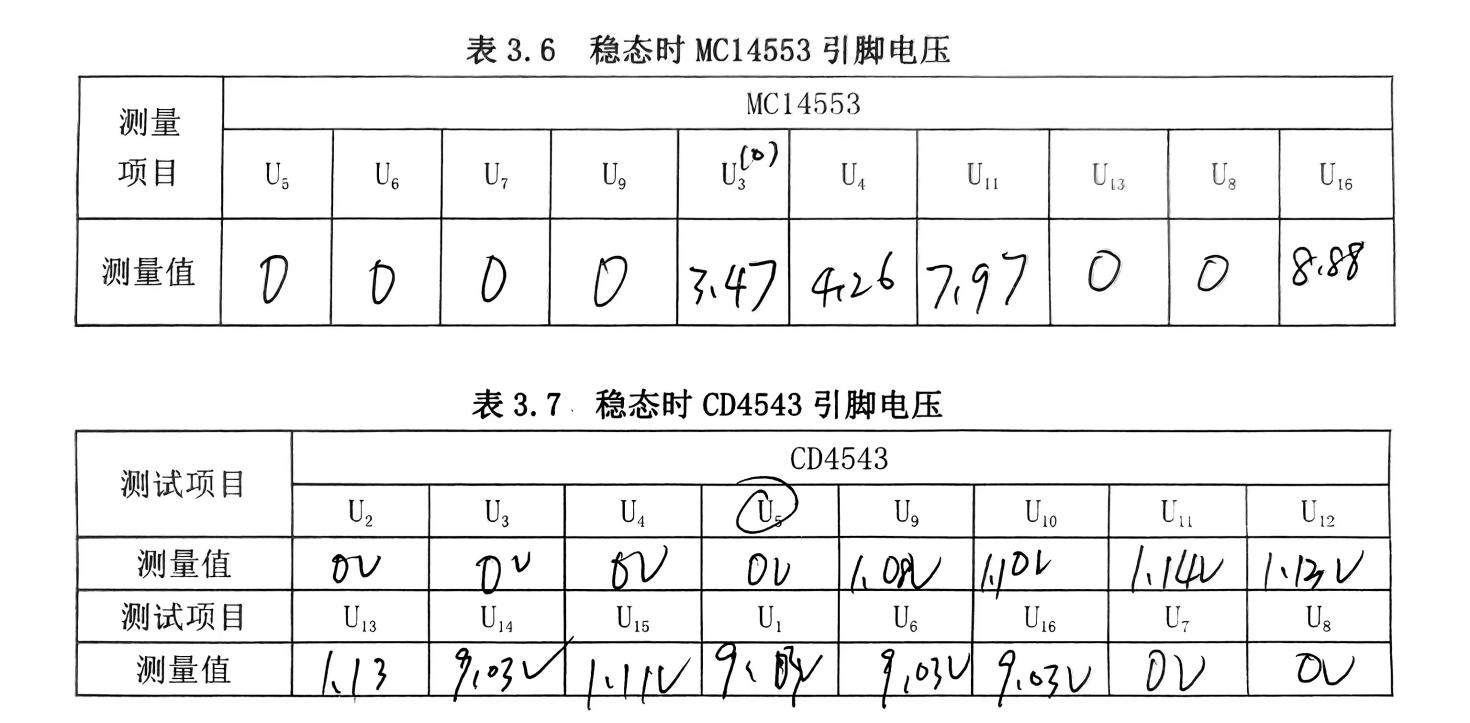 表3.6 稳态时MC14553引脚电压
测量项目 MC14553
U₅ U₆ U₇ U₉ U₃(0) U₄ U₁₁ U₁₃ U₈ U₁₆
测量值 0 0 0 0 3.47 4.26 7.97 0 0 8.88
表3.7 稳态时CD4543引脚电压
测试项目 CD4543
U₂ U₃ U₄ U₅ U₉ U₁₀ U₁₁ U₁₂
测量值 0V 0V 0V 0V 1.08V 1.10V 1.14V 1.13V
测试项目 U₁₃ U₁₄ U₁₅ U₁ U₆ U₁₆ U₇ U₈
测量值 1.13 9.03V 1.11V 9.03V 9.03V 0V 0V